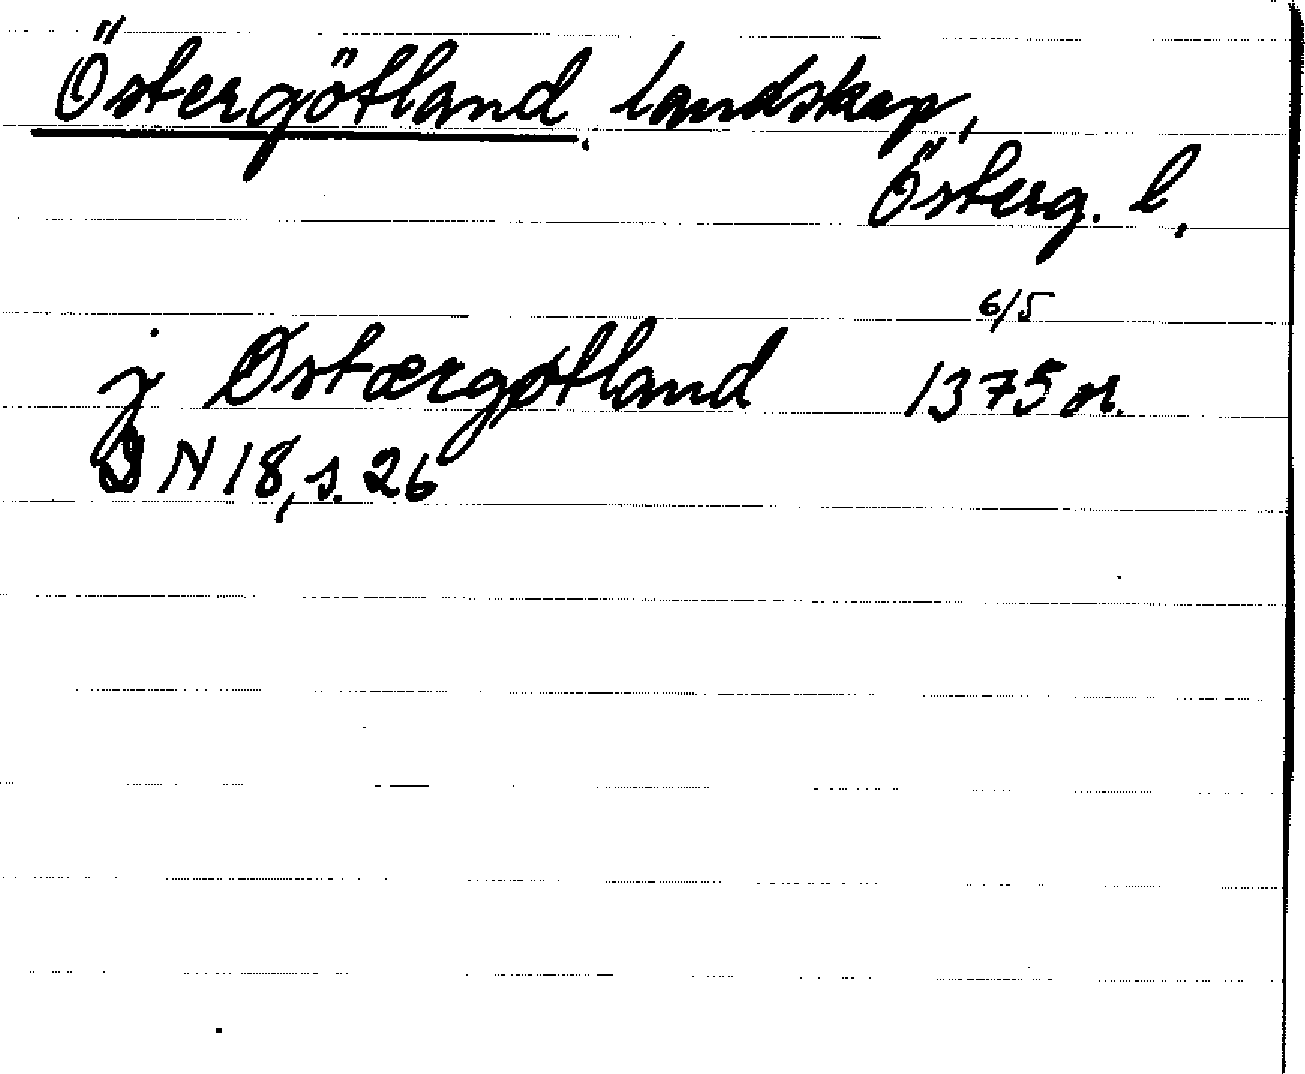 Östergötland, landskap,
Österg. l.
6/5
j Østærgøtland 1375 or.
DN 18, s. 26